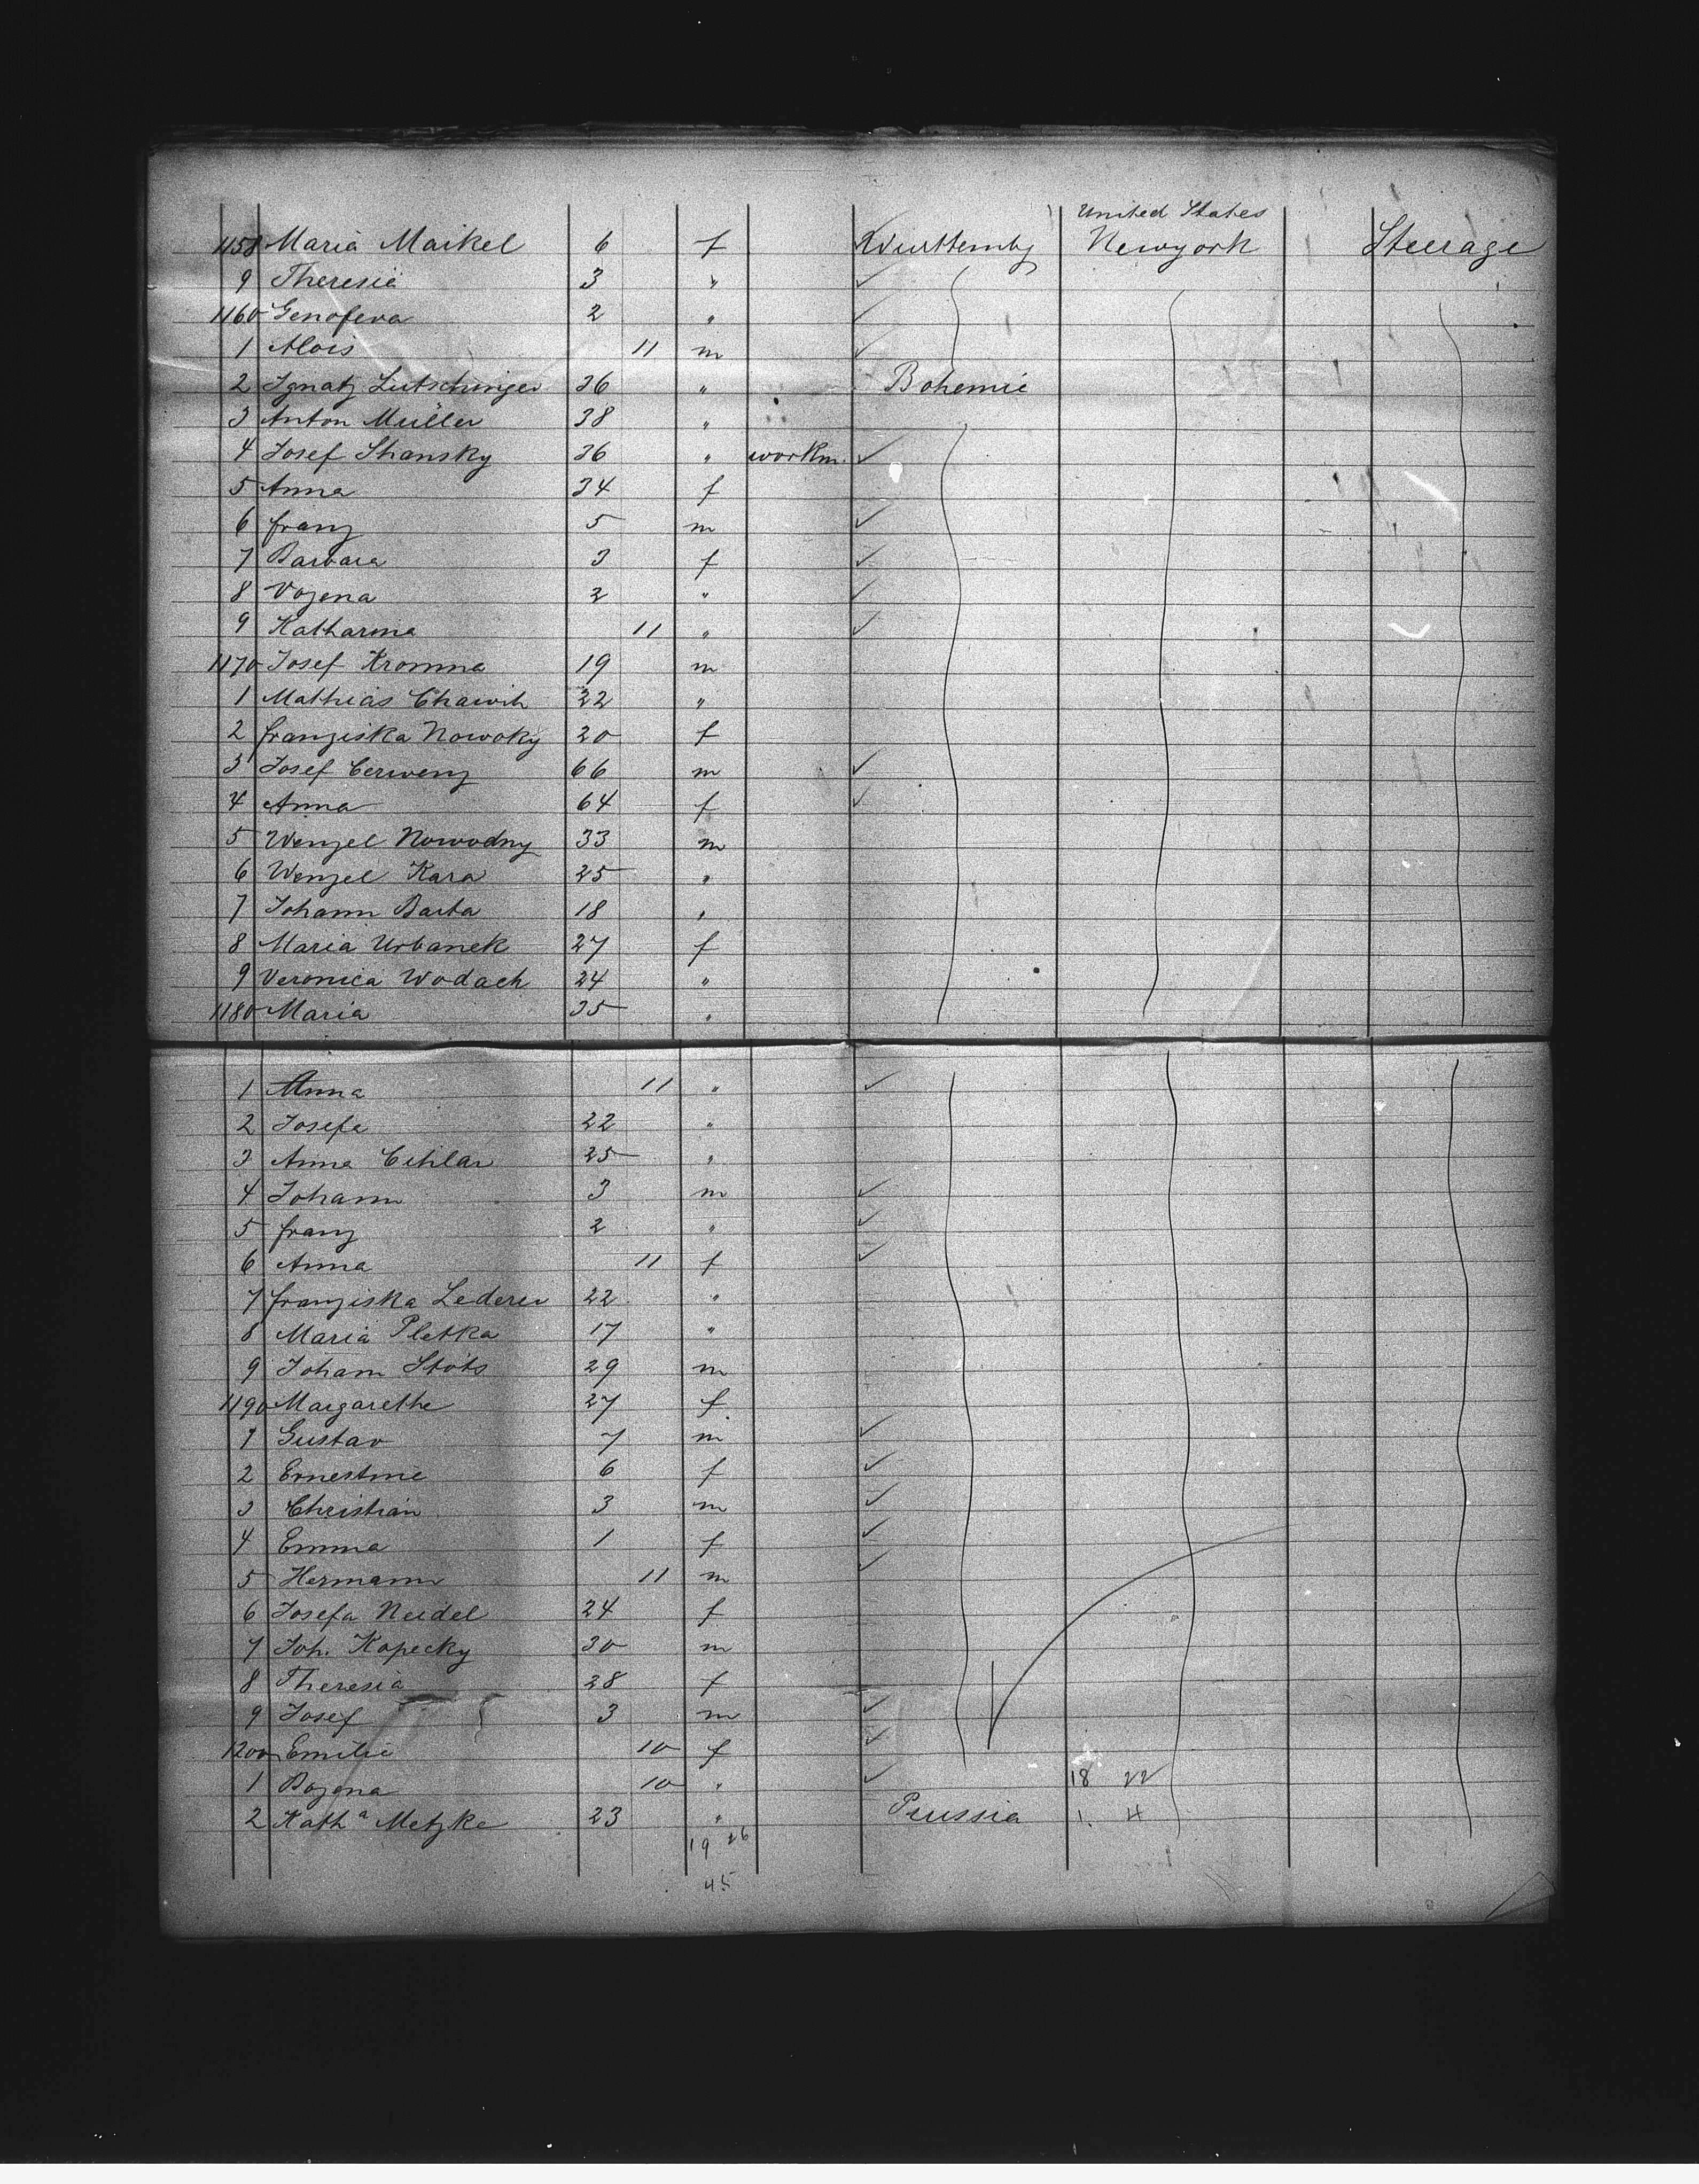 United States
1158 Maria Maikel 6 f Wurttembg Newyork Steerage
9 Theresia 3 " ✓
1160 Genofeva 2 " ✓
1 Alois 11 m ✓
2 Ignatz Lutschinger 36 " Bohemie
3 Anton Müller 38 "
4 Josef Shansky 36 " workm. ✓
5 Anna 34 f
6 franz 5 m ✓
7 Barbara 3 f ✓
8 Vozena 2 " ✓
9 Katharina 11 " ✓
1170 Josef Kromna 19 m
1 Mathias 22 "
2 franziska Nowoky 20 f
3 Josef Cerwenz 66 m ✓
4 Anna 64 f ✓
5 Wenzel Nowodny 33 m
6 Wenzel Kara 25 "
7 Johann Barta 18 "
8 Maria Urbanek 27 f
9 Veronica Wodach 24 "
1180 Maria 35 "
1 Anna 11 " ✓
2 Josefa 22 "
3 Anna Cihlar 25 "
4 Johann 3 m ✓
5 franz 2 " ✓
6 Anna 11 f ✓
7 franziska Lederer 22 "
8 Maria Pletka 17 "
9 Johann Stots 29 m
1190 Margarethe 27 f
1 Gustav 7 m ✓
2 Ernestine 6 f ✓
3 Christian 3 m ✓
4 Emma 1 f ✓
5 Hermann 11 m ✓
6 Josefa Neidel 24 f
7 Joh. Kopecky 30 m
8 Theresia 28 f
9 Josef 3 m ✓
1200 Emilie 10 f ✓
1 Bozena 10 " ✓ 18 22
2 Kath a Metzke 23 " Prussia 1. 4
19 26
45